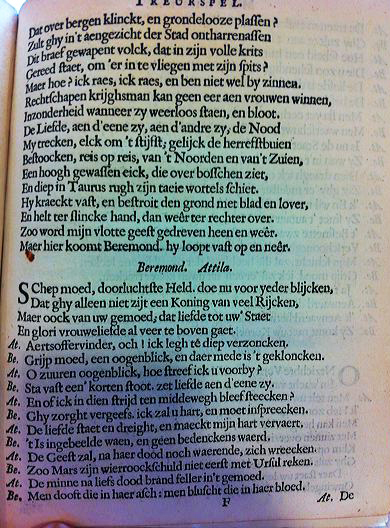 TREURSPEL.
Dat over bergen klinckt, en grondelooze plassen?
Zult ghy in't aengezicht der Stad ontharrenassen
Dit braef gewapent volck, dat in zijn volle krits
Gereed staet, om 'er in te vliegen met zijn spits?
Maer hoe? ick raes, ick raes, en ben niet wel by zinnen.
Rechtschapen krijghsman kan geen eer aen vrouwen winnen,
Inzonderheid wanneer zy weerloos staen, en bloot.
De Liefde, aen d'eene zy, aen d'andre zy, de Nood
My trecken, elck om 't stijfst; gelijck de herrefstbuien
Bestoocken, reis op reis, van 't Noorden en van't Zuien,
Een hoogh gewassen eick, die over bosschen ziet,
En diep in Taurus rugh zijn taeie wortels schiet.
Hy kraeckt vast, en bestroit den grond met blad en lover,
En helt ter slincke hand, dan weêr ter rechter over.
Zoo word mijn vlotte geest gedreven heen en weêr.
Maer hier koomt Beremond. hy loopt vast op en neêr.
Beremond. Attila.
SChep moed, doorluchtste Held. doe nu voor yeder blijcken,
Dat ghy alleen niet zijt een Koning van veel Rijcken,
Maer oock van uw gemoed; dat liefde tot uw' Staet
En glori vrouweliefde al veer te boven gaet.
At. Aertsoffervinder, och! ick legh te diep verzoncken.
Be. Grijp moed, een oogenblick, en daer mede is 't gekloncken.
At. O zuuren oogenblick, hoe streef ick u voorby?
Be. Sta vast een' korten stoot. zet liefde aen d'eene zy.
At. En of ick in dien strijd ten middewegh bleef steecken?
Be. Ghy zorght vergeefs. ick zal u hart, en moet inspreecken.
At. De liefde staet en dreight, en maeckt mijn hart vervaert.
Be. 't Is ingebeelde waen, en geen bedenckens waerd.
At. De Geest zal, na haer dood noch waerende, zich wreecken.
Be. Zoo Mars zijn wieroockschuld niet eerst met Ursul reken.
At. De minne na liefs dood brand feller in't gemoed.
Be. Men dooft die in haer asch: men bluscht die in haer bloed.
F
At. De